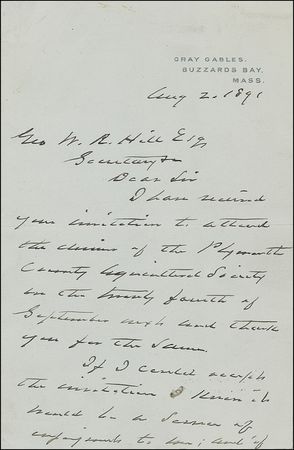 GRAY GABLES.
BUZZARDS BAY,
MASS.
Aug 2. 1891
Geo W. R. Hill Esq
Secretary &
Dear Sir
I have received
your invitation to attend
the dinner of the Plymouth
County Agricultural Society
on the twenty fourth of
September next and thank
you for the same.
If I could accept
the invitation I know it
would be a source of
enjoyment to me; and if